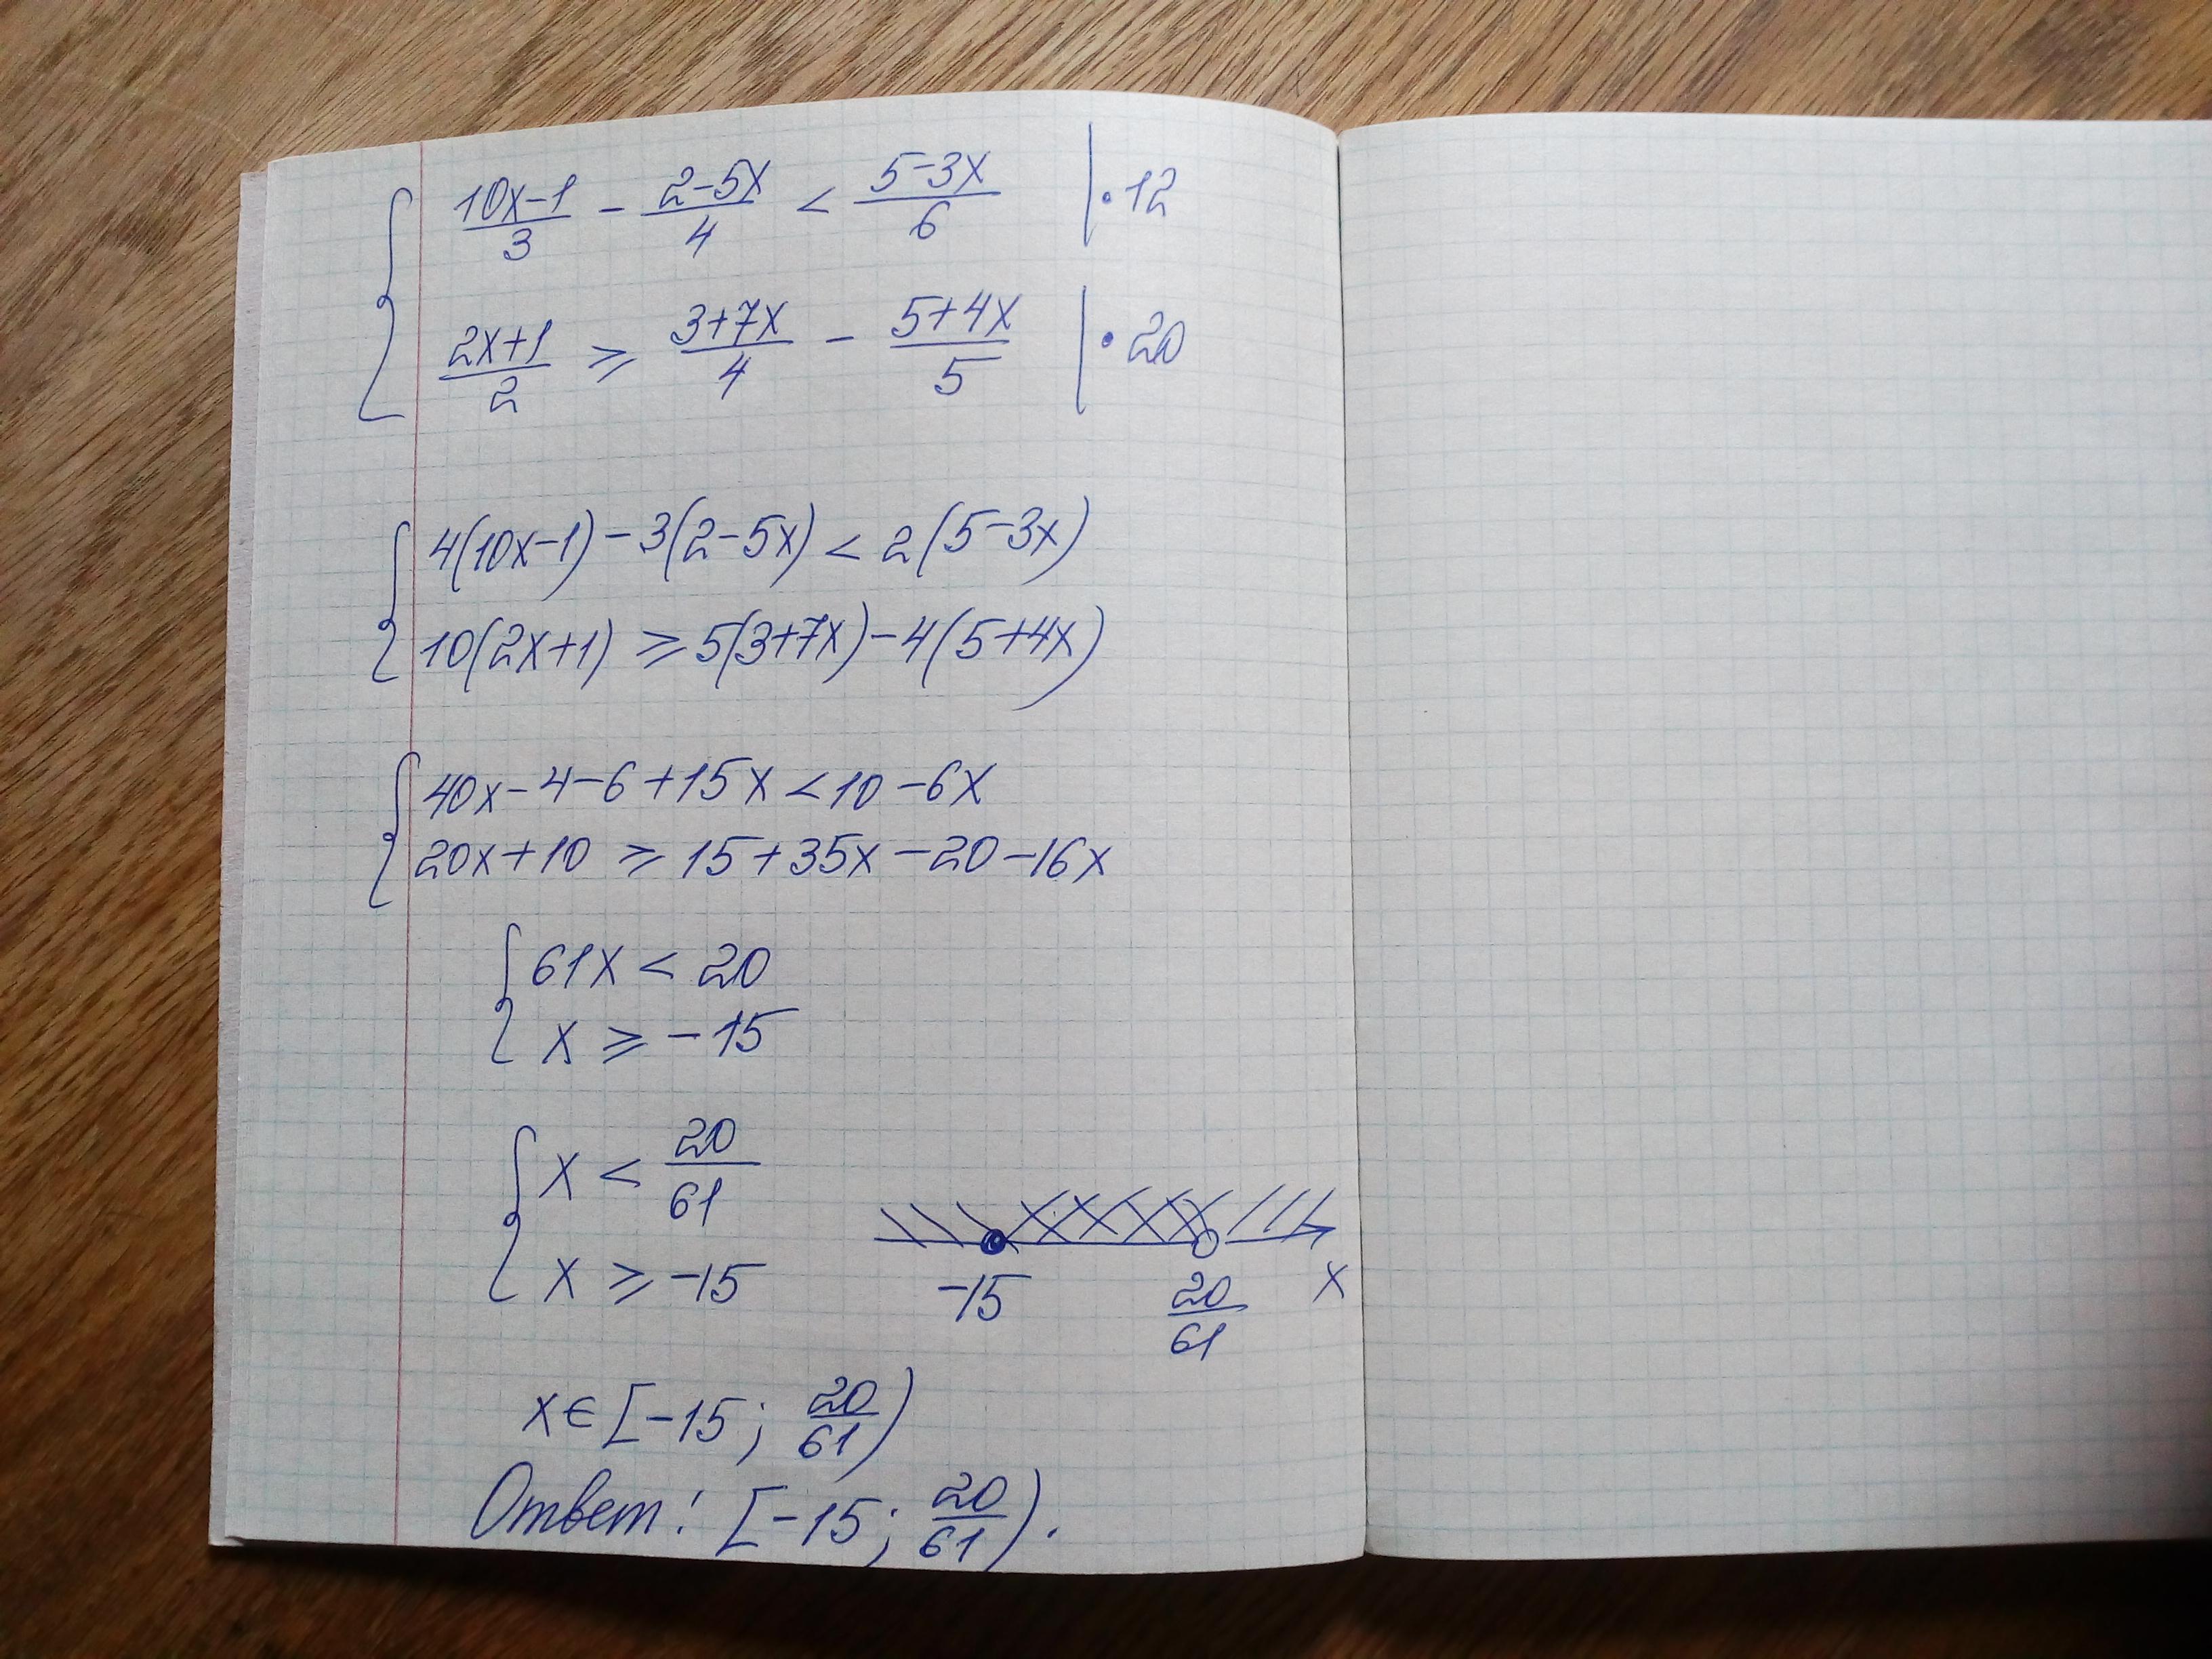 { (10x-1)/3 - (2-5x)/4 < (5-3x)/6 | · 12
(2x+1)/2 ⩾ (3+7x)/4 - (5+4x)/5 | · 20
{ 4(10x-1) - 3(2-5x) < 2(5-3x)
10(2x+1) ⩾ 5(3+7x) - 4(5+4x)
{ 40x - 4 - 6 + 15x < 10 - 6x
20x + 10 ⩾ 15 + 35x - 20 - 16x
{ 61x < 20
x ⩾ -15
{ x < 20/61
x ⩾ -15
-15 20/61 x
x ∈ [-15; 20/61)
Ответ: [-15; 20/61).